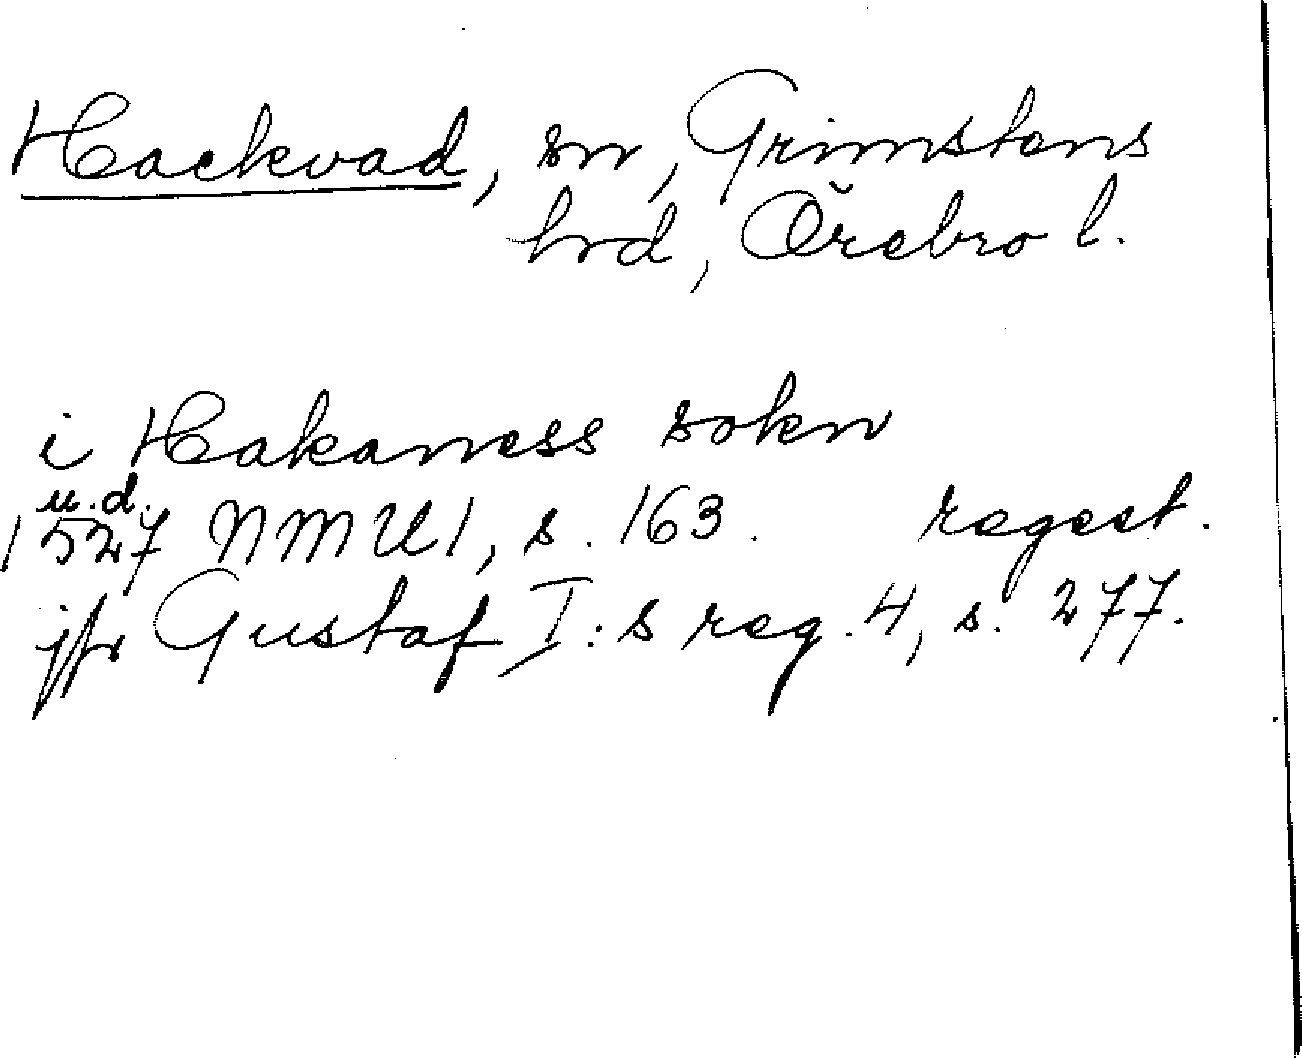 Hackvad, sn, Grimstens
hrd, Örebro l.
i Hakaness sokn
u.d.
1527 NMU1, s. 163. regest.
jfr Gustaf I:s reg. 4, s. 277.